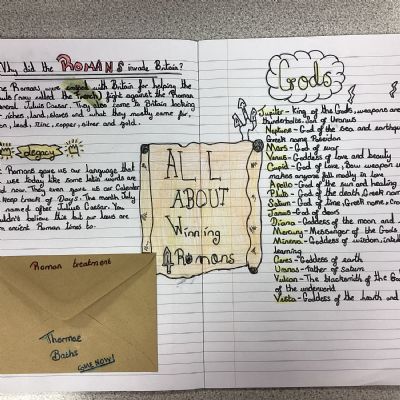 Why did the ROMANS invade Britain?
The Romans were annoyed with Britain for helping the
Gauls (now called the French) fight against the Roman
General Julius Caesar. They also came to Britain looking
riches, land, slaves and what they mostly came for,
iron, lead, zinc, copper, silver and gold.
Legacy
Romans gave us our language that
use today like some latin words are
now. They even gave us our Calendar
keep track of Days. The month July
named after Julius Caesar. You
wouldn't believe this but our laws are
ancient Roman times to.
Roman treatment
Thermae
Baths
COME NOW!
ALL
ABOUT
Winning
Romans
Gods
Jupiter - King of the Gods, weapons are
thunderbolts. Son of Uranus
Neptune - God of the sea and earthqu
Greek name Poseidon
Mars - God of war
Venus - Goddess of love and beauty
Cupid - God of Love, Bow weapon
makes anyone fall madly in love
Apollo - God of the sun and healing
Pluto - God of the death, Greek nam
Saturn - God of time, Greek name, Cro
Janus - God of doors
Diana - Goddess of the moon and
Mercury - Messenger of the Gods
Minerva - Goddess of wisdom, intel
learning
Ceres - Goddess of earth
Uranus - father of saturn
Vulcan - The blacksmith of the Go
of the underworld
Vesta - Goddess of the hearth and